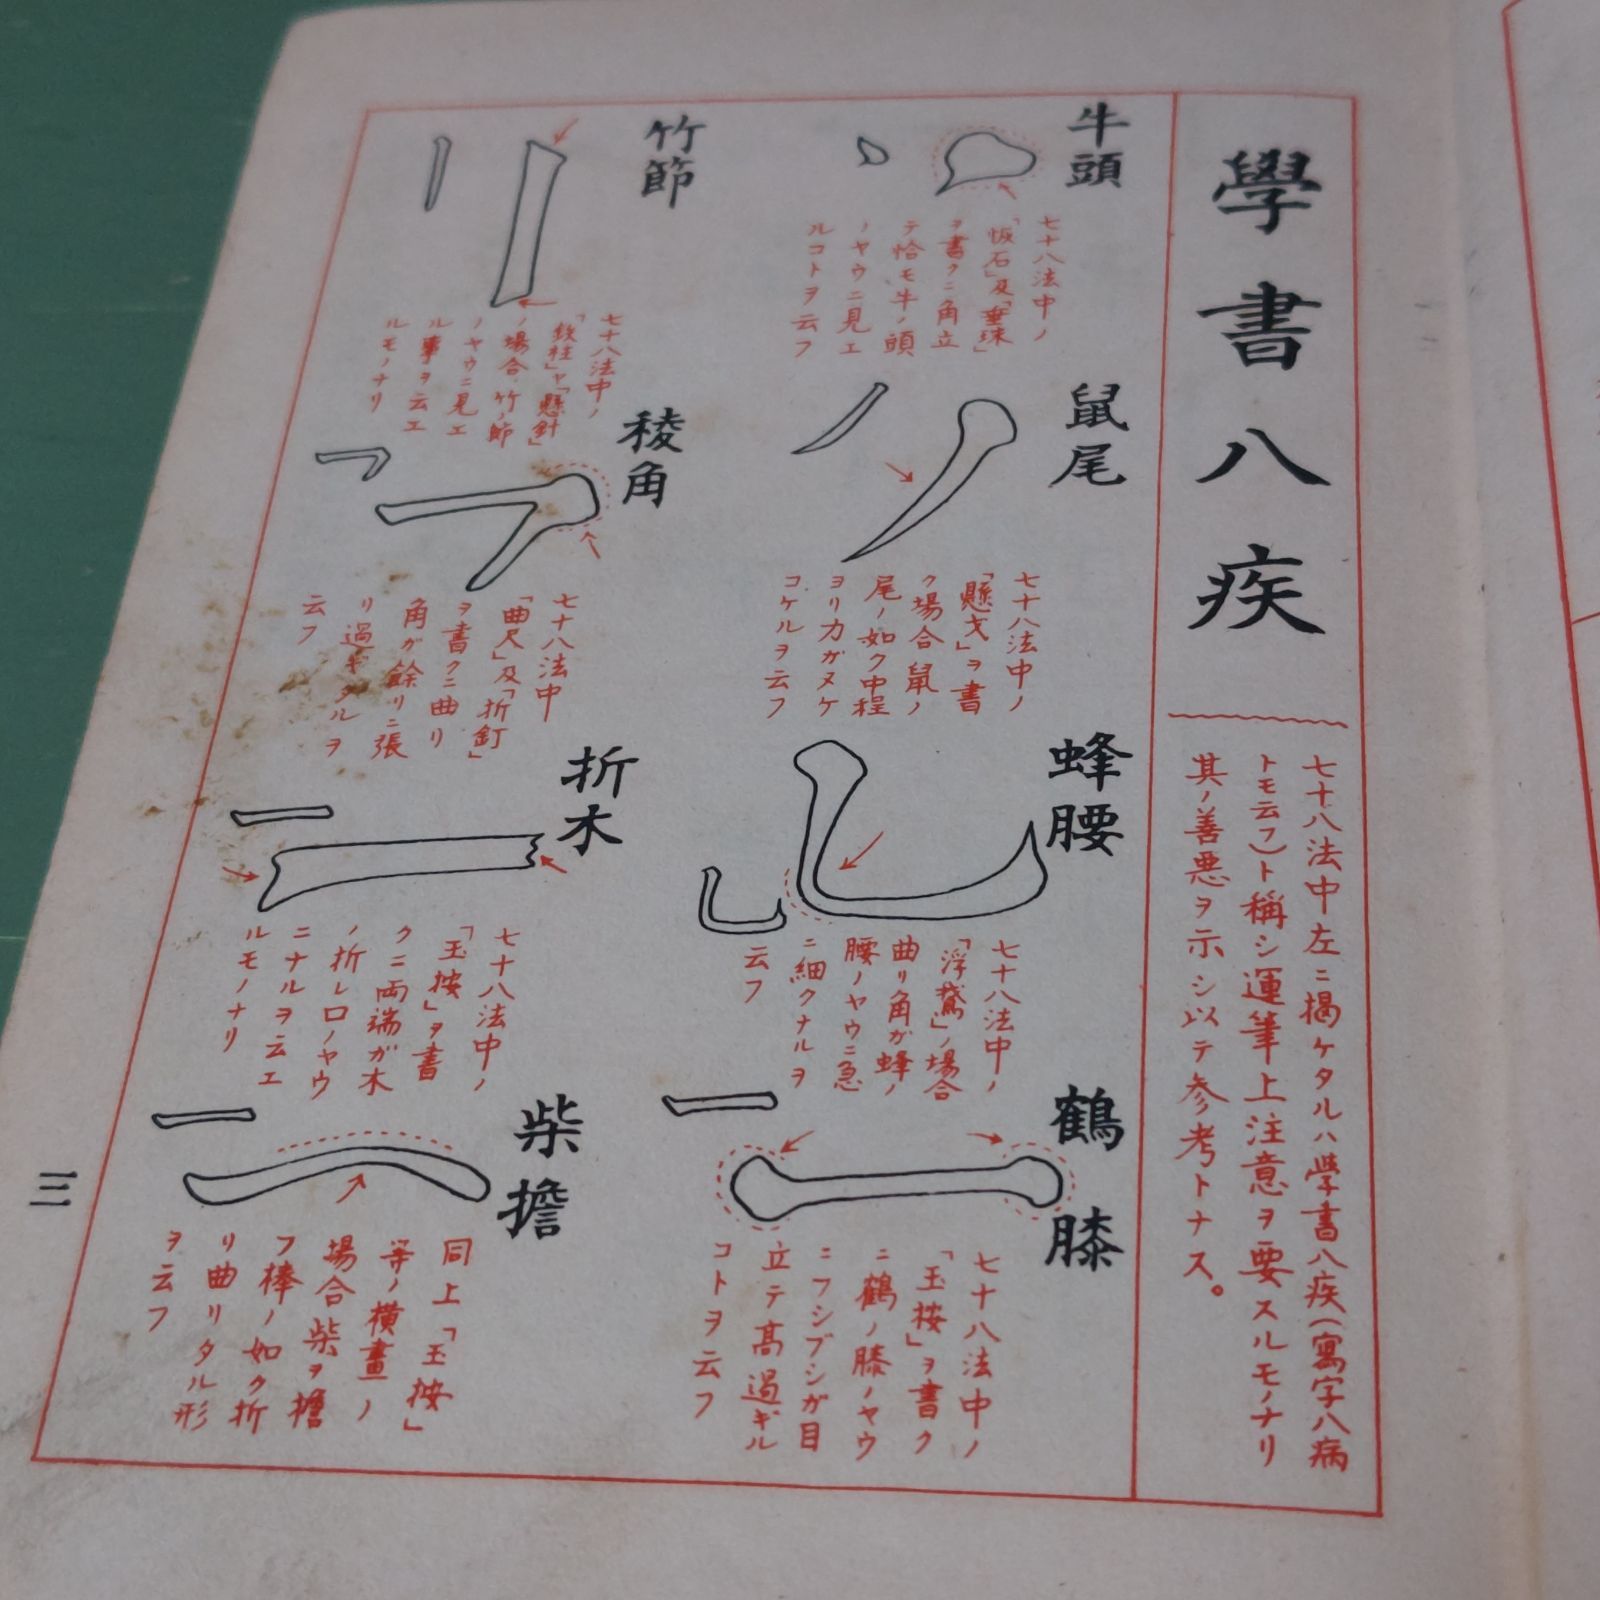 學書八疾
七十八法中左ニ揭ケタルハ學書八疾(寫字八病
トモ云フ)ト稱シ運筆上注意ヲ要スルモノナリ
其ノ善悪ヲ示シ以テ参考トナス。
牛頭
七十八法中ノ
「怪石」及「垂珠」
ヲ書クニ角立
テ恰モ牛ノ頭
ノヤウニ見エ
ルコトヲ云フ
鼠尾
七十八法中ノ
「懸戈」ヲ書
ク場合鼠ノ
尾ノ如ク中程
ヨリ力ガヌケ
コケルヲ云フ
蜂腰
七十八法中ノ
「浮鵞」ノ場合
曲リ角が蜂ノ
腰ノヤウニ急
ニ細クナルヲ
云フ
鶴膝
七十八法中ノ
「玉按」ヲ書ク
ニ鶴ノ膝ノヤウ
ニフシブシガ目
立テ高過ギル
コトヲ云フ
竹節
七十八法中ノ
「鉄柱」ヤ「懸針」
ノ場合竹ノ節
ノヤウニ見エ
ル事ヲ云エ
ルモノナリ
稜角
七十八法中
「曲尺」及「折釘」
ヲ書クニ曲リ
角ガ餘リニ張
リ過ギタルヲ
云フ
折木
七十八法中ノ
「玉按」ヲ書
クニ両端ガ木
ノ折レ口ノヤウ
ニナルヲ云エ
ルモノナリ
柴擔
同上「玉按」
等ノ橫畫ノ
場合柴ヲ擔
フ棒ノ如ク折
リ曲リタル形
ヲ云フ
三